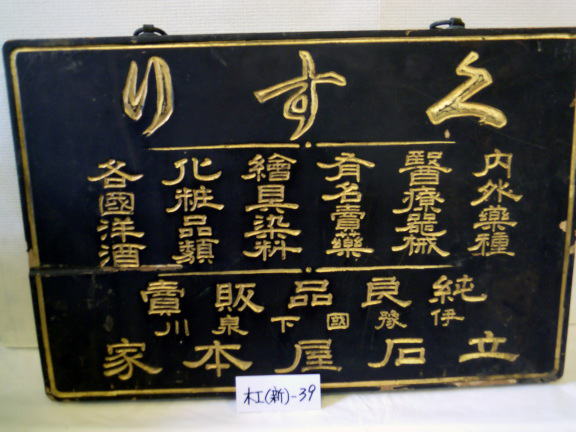 くすり
内外藥種
醫療器械
有名賣藥
繪具染料
化粧品類
各國洋酒
純良品販賣
伊豫國下泉川
立石屋本家
木工(新)-39